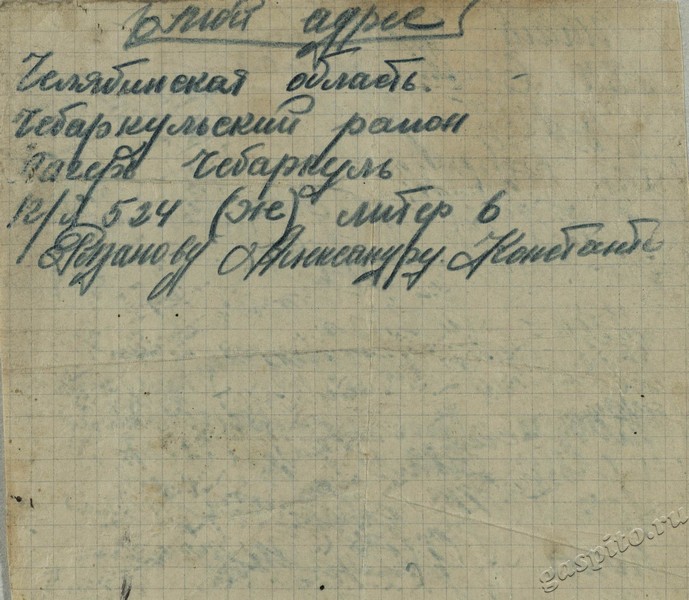 мой адрес
Челябинская область.
Чебаркульский район
Лагерь Чебаркуль
п/я 524 (ж) литер б
Рязанову Александру Констант
gaspito.ru